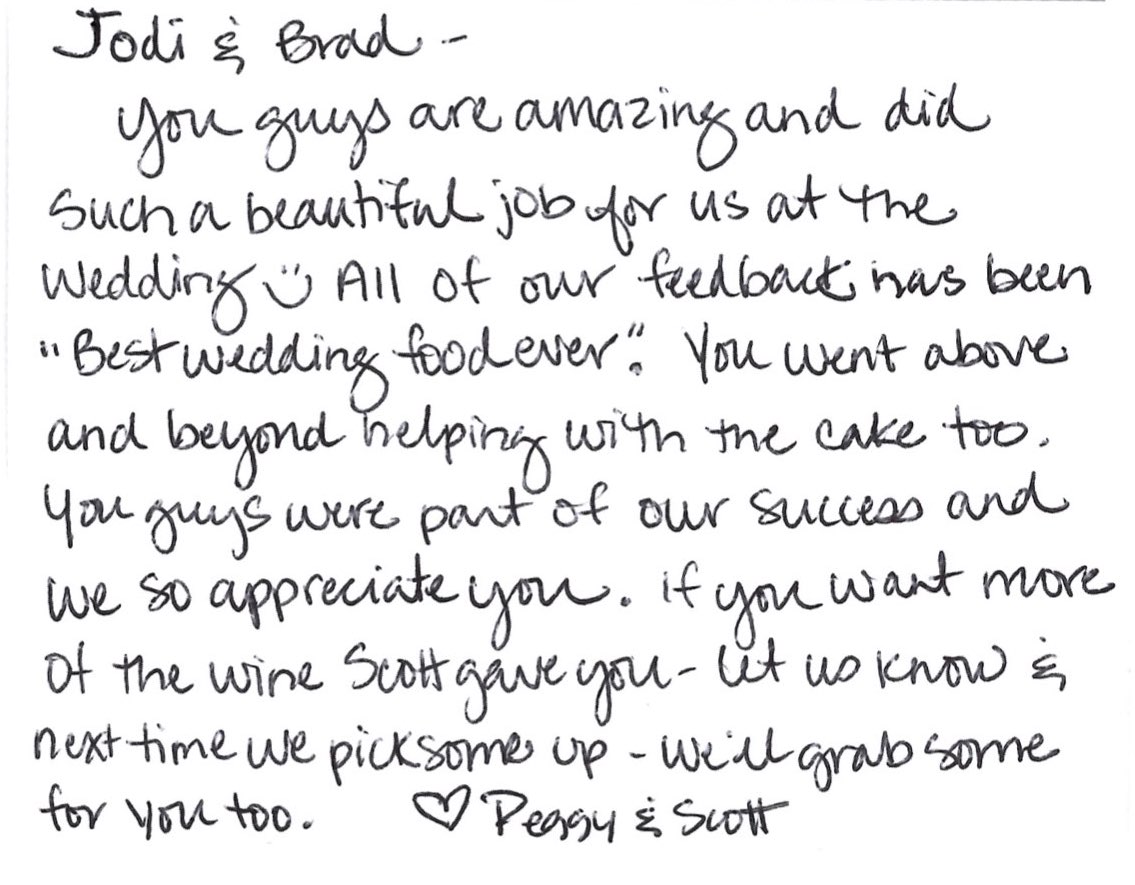 Jodi & Brad -
You guys are amazing and did
such a beautiful job for us at the
wedding :) All of our feedback has been
"Best wedding food ever". You went above
and beyond helping with the cake too.
You guys were part of our success and
we so appreciate you. If you want more
of the wine Scott gave you - let us know &
next time we pick some up - we'll grab some
for you too. ♡ Peggy & Scott